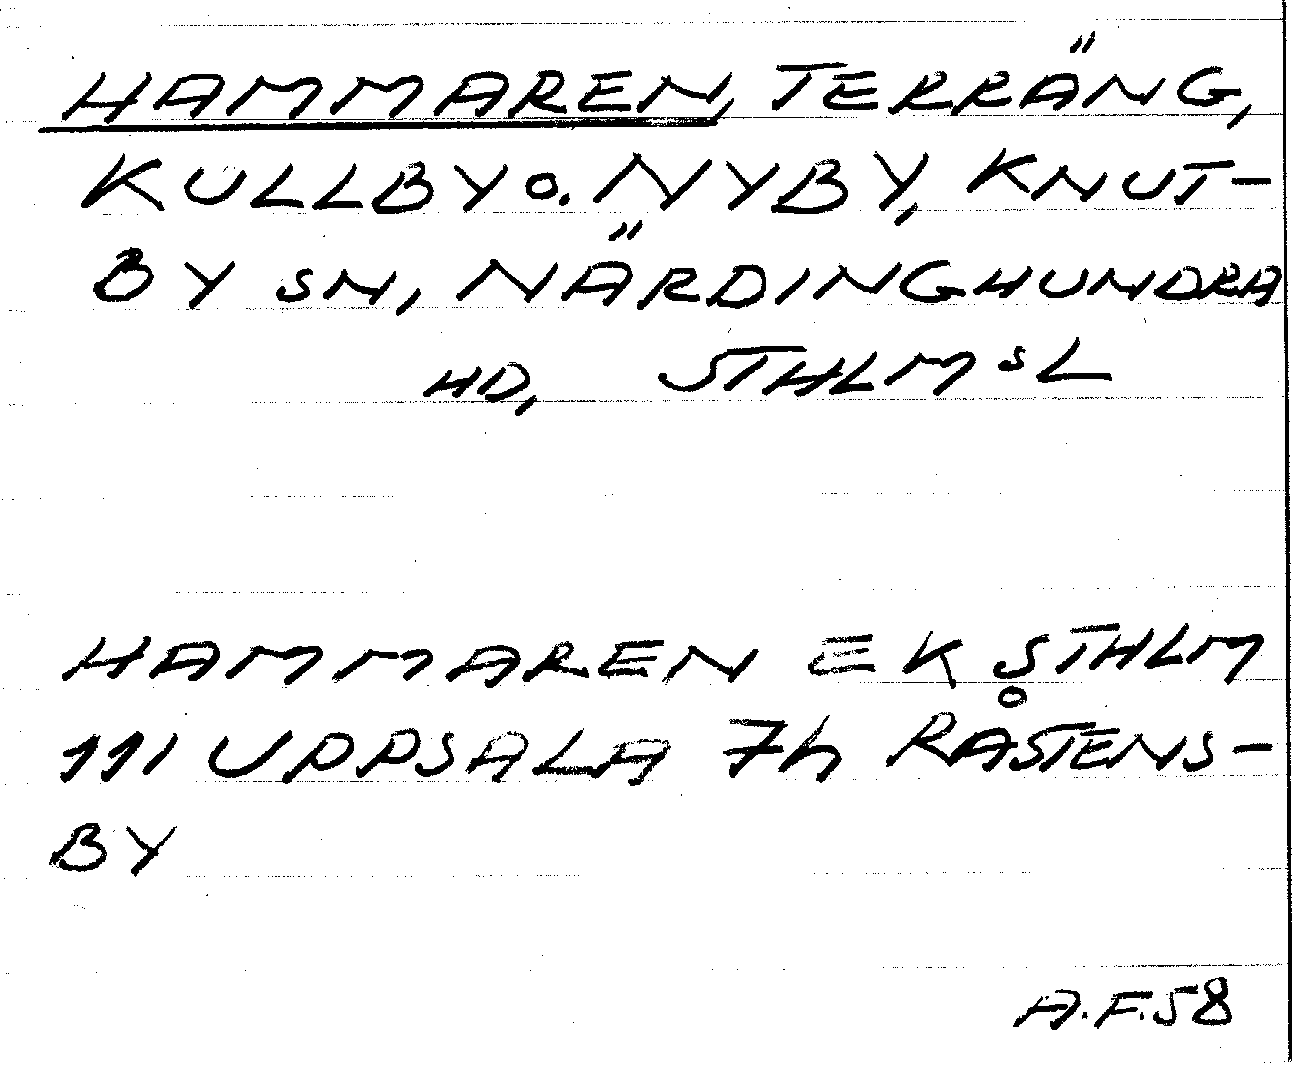 HAMMAREN, TERRÄNG,
KULLBY O. NYBY, KNUT-
BY SN, NÄRDINGHUNDRA
HD, STHLMS L
HAMMAREN EK STHLM
111 UPPSALA 7h RÅSTENS-
BY
A.F.58